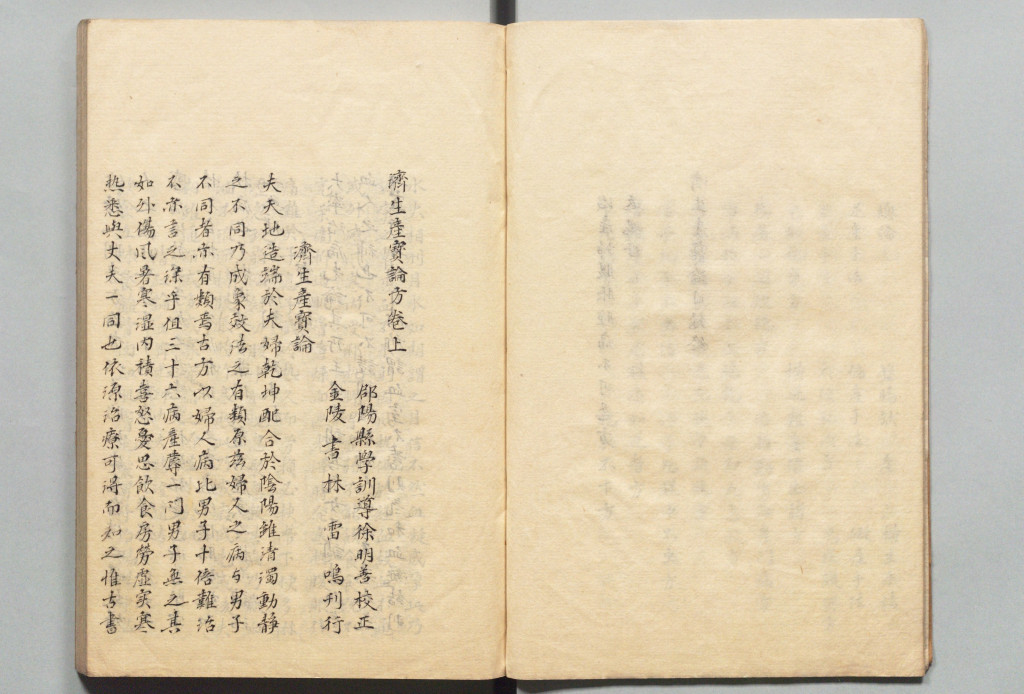 濟生產寳論方卷上
郃陽縣學訓導徐明善校正
金陵書林雷鳴刋行
濟生產寳論
夫天地造端於夫婦乾坤配合於陰陽雖清濁動静
之不同乃成象效法之有類原茲婦人之病与男子
不同者亦有類焉古方以婦人病比男子十倍難治
不亦言之深乎但三十六病產蓐一門男子無之其
如外傷風暑寒湿内積喜怒憂思飲食房勞虛实寒
热悉與丈夫一同也依源治療可得而知之惟古書